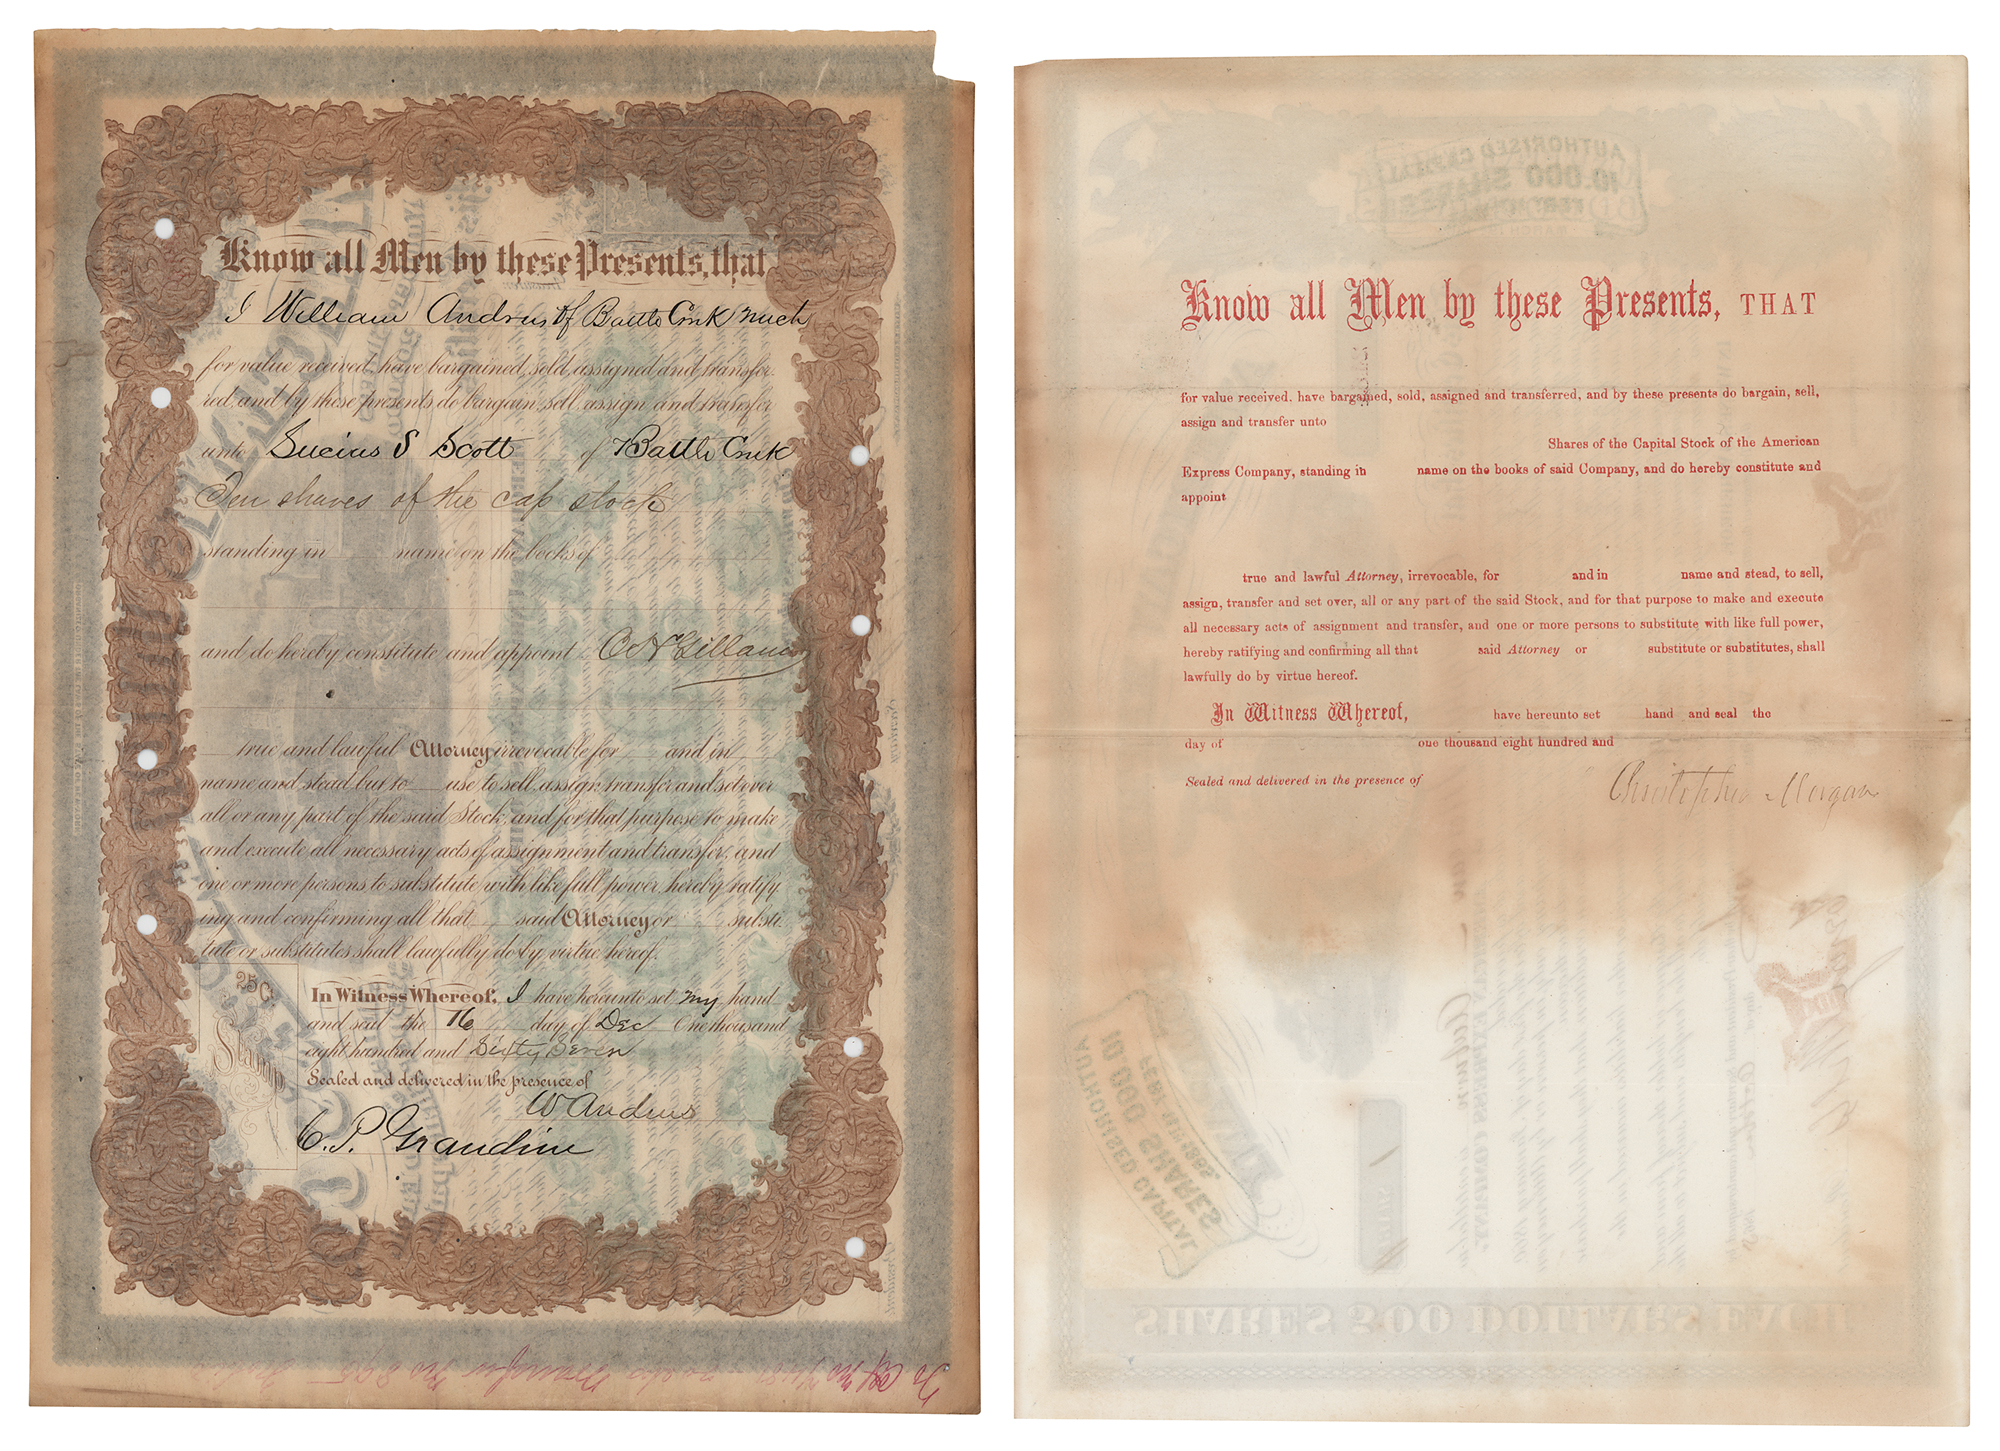 Know all Men by these Presents, that
I William Andrus of Battle Creek Mich
for value received, have bargained, sold, assigned and transfer-
red, and by these presents do bargain, sell, assign and transfer
unto Lucius S Scott of Battle Creek
Ten shares of the cap stock
standing in name on the books of
and do hereby constitute and appoint
true and lawful Attorney irrevocable for and in
name and stead but to use to sell, assign, transfer and set over
all or any part of the said Stock, and for that purpose to make
and execute all necessary acts of assignment and transfer, and
one or more persons to substitute with like full power, hereby ratify-
ing and confirming all that said Attorney or substi-
tute or substitutes shall lawfully do by virtue hereof.
25 C.
Stamp
In Witness Whereof, I have hereunto set my hand
and seal the 16 day of Dec One thousand
eight hundred and Sixty Seven
Sealed and delivered in the presence of
W Andrus
C. P. Grandine
Know all Men by these Presents, THAT
for value received, have bargained, sold, assigned and transferred, and by these presents do bargain, sell,
assign and transfer unto
Shares of the Capital Stock of the American
Express Company, standing in name on the books of said Company, and do hereby constitute and
appoint
true and lawful Attorney, irrevocable, for and in name and stead, to sell,
assign, transfer and set over, all or any part of the said Stock, and for that purpose to make and execute
all necessary acts of assignment and transfer, and one or more persons to substitute with like full power,
hereby ratifying and confirming all that said Attorney or substitute or substitutes, shall
lawfully do by virtue hereof.
In Witness Whereof, have hereunto set hand and seal the
day of one thousand eight hundred and
Sealed and delivered in the presence of
Christopher Morgan
AUTHORISED CAPITAL
10.000 SHARES
AUTHORISED CAPITAL
SHARES
SHARES 500 DOLLARS EACH